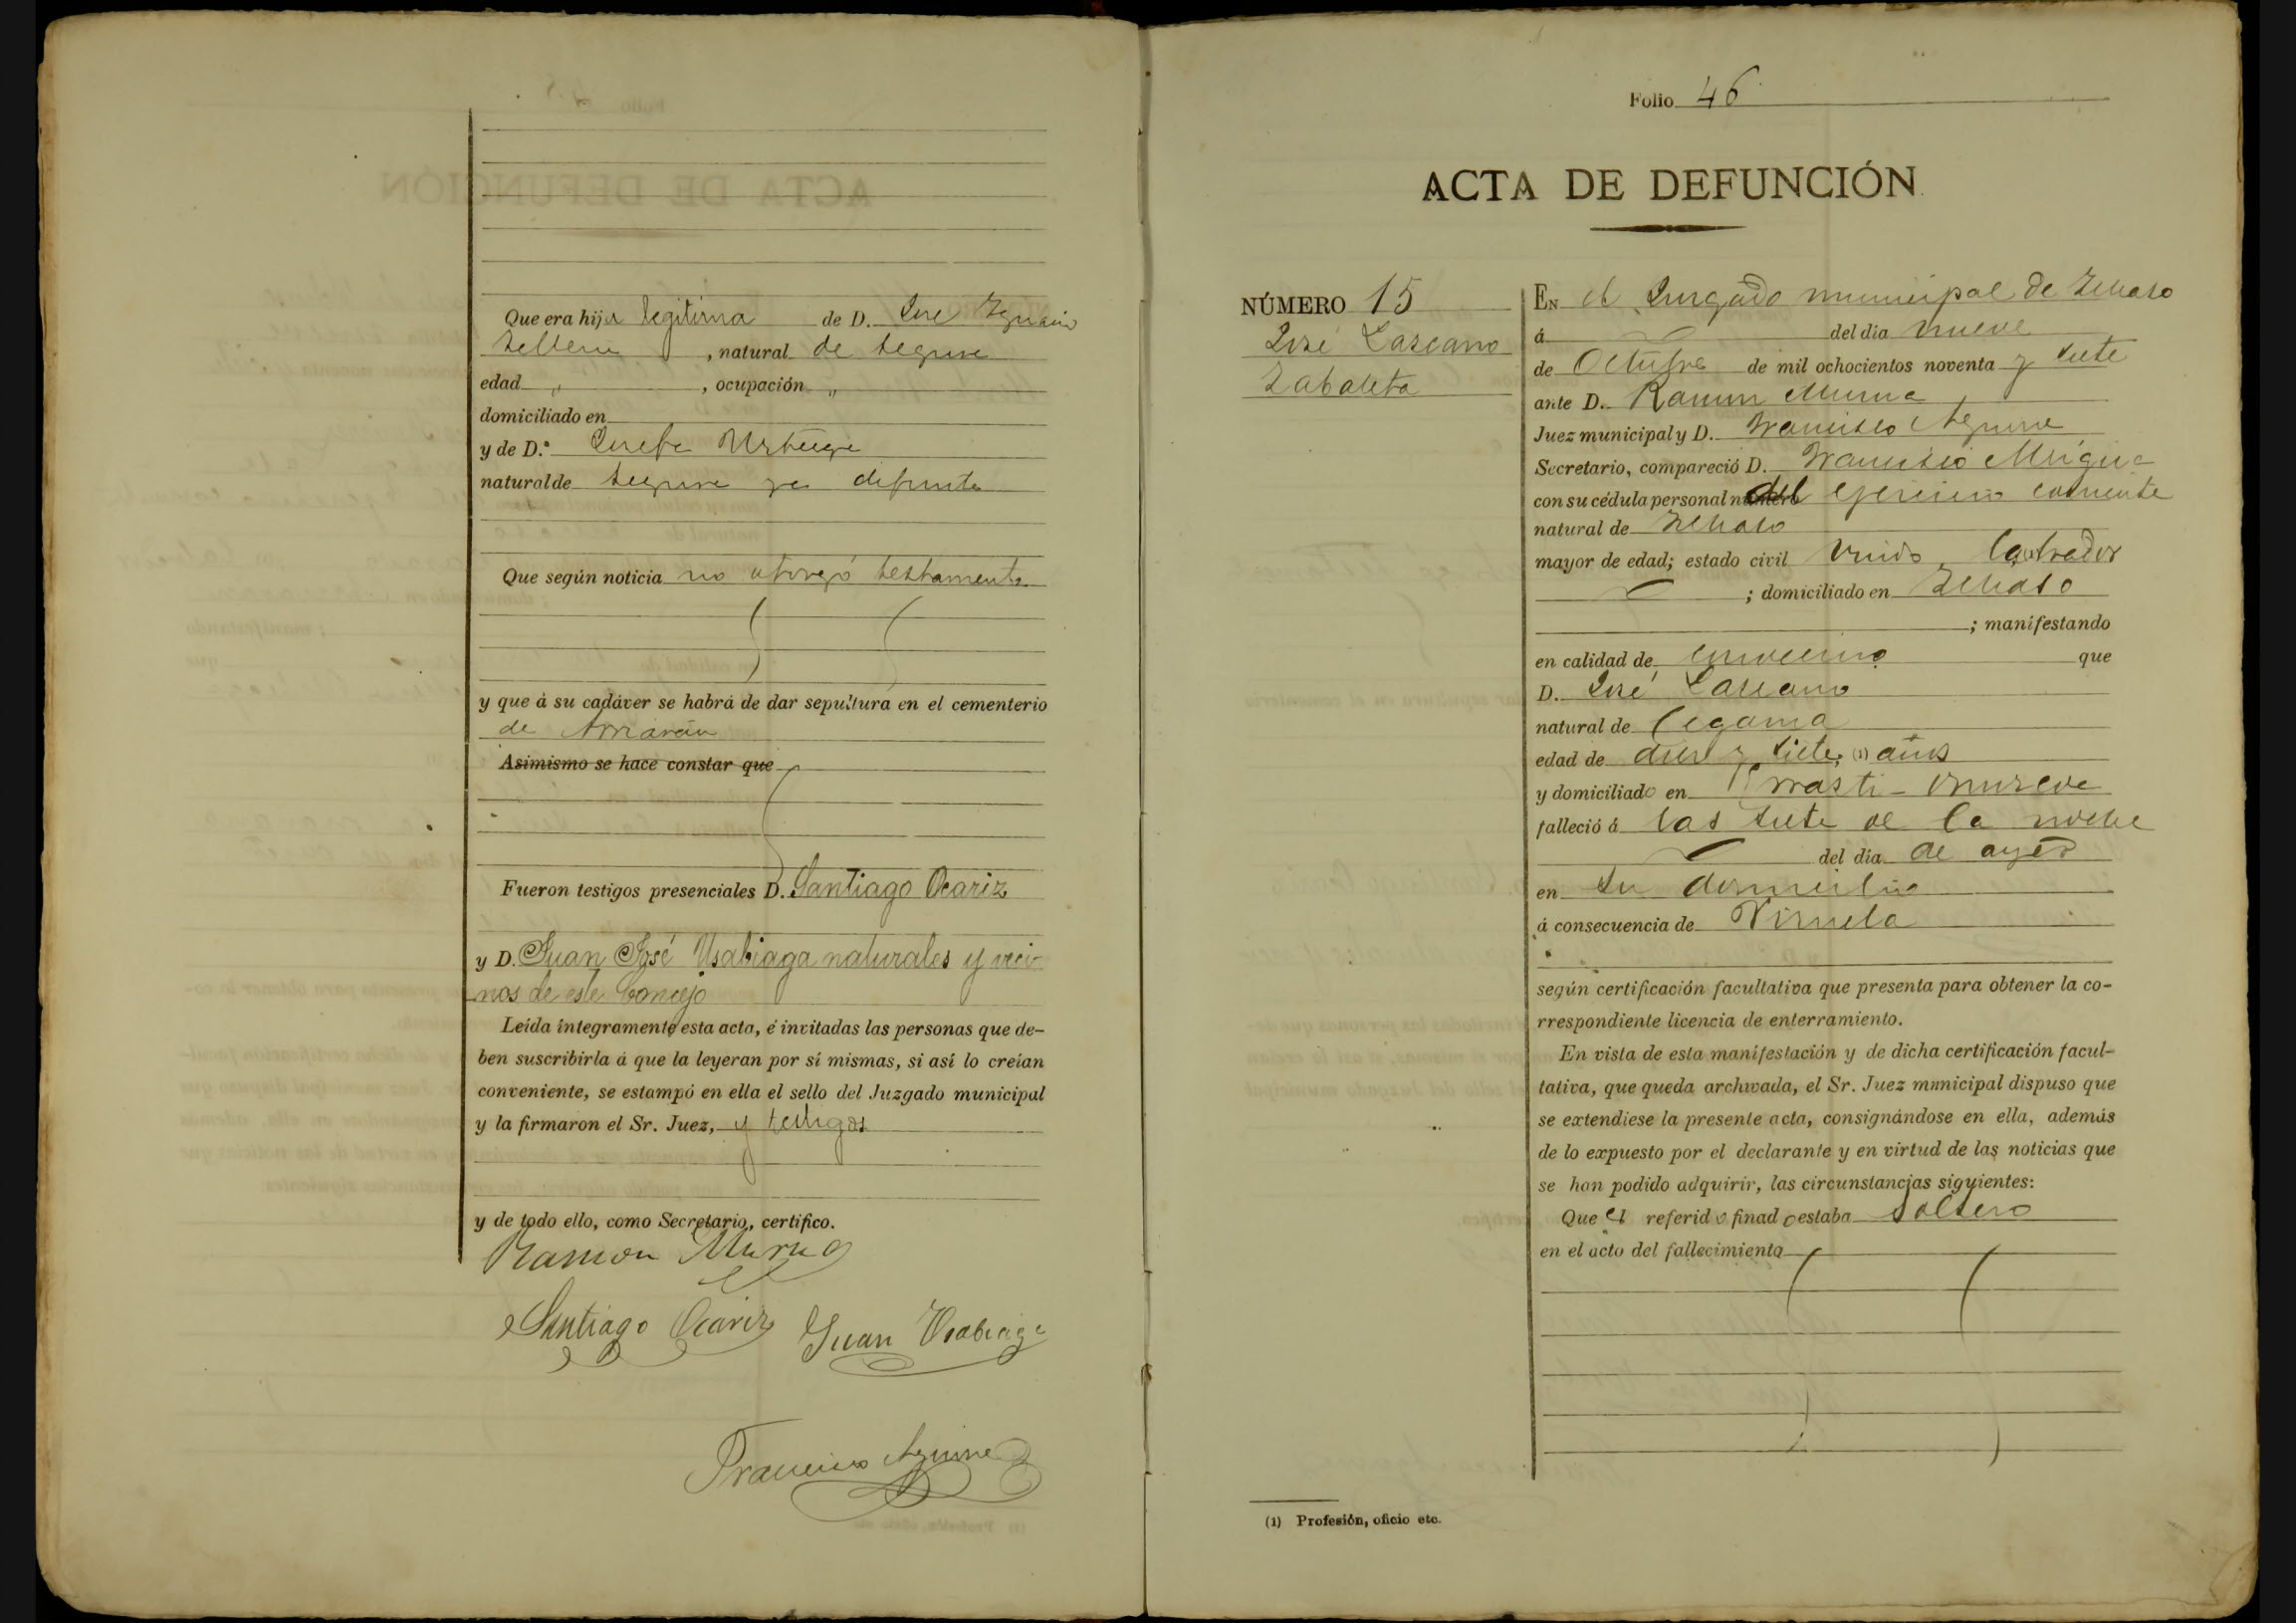 Que era hija legitima de D. José Ignacio
Telleria, natural de Segura
edad " , ocupación "
domiciliado en
y de D.ª Josefa Urteaga
natural de Segura ya difunta
Que según noticia no otorgó testamento
y que á su cadáver se habrá de dar sepultura en el cementerio
de Arriarán
Asimismo se hace constar que
Fueron testigos presenciales D. Santiago Ocariz
y D. Juan José Usabiaga naturales y veci-
nos de este Concejo
Leída íntegramente esta acta, é invitadas las personas que de-
ben suscribirla á que la leyeran por sí mismas, si así lo creían
conveniente, se estampó en ella el sello del Juzgado municipal
y la firmaron el Sr. Juez, y testigos
y de todo ello, como Secretario, certifico.
Ramon Murua
Santiago Ocariz Juan Usabiaga
Francisco Aguirre
Folio 46
ACTA DE DEFUNCIÓN
NÚMERO 15
José Lascano
Zabaleta
EN el Juzgado municipal de Ichaso
á del dia nueve
de Octubre de mil ochocientos noventa y siete
ante D. Ramon Murua
Juez municipal y D. Francisco Aguirre
Secretario, compareció D. Francisco Múgica
con su cédula personal número del ejercicio corriente
natural de Ichaso
mayor de edad; estado civil Viudo labrador
; domiciliado en Ichaso
; manifestando
en calidad de convecino que
D. José Lascano
natural de Cegama
edad de diez y siete (1) años
y domiciliado en Errasti-
falleció á las siete de la noche
del dia de ayer
en su domicilio
á consecuencia de Viruela
según certificación facultativa que presenta para obtener la co-
rrespondiente licencia de enterramiento.
En vista de esta manifestación y de dicha certificación facul-
tativa, que queda archivada, el Sr. Juez municipal dispuso que
se extendiese la presente acta, consignándose en ella, además
de lo expuesto por el declarante y en virtud de las noticias que
se han podido adquirir, las circunstancias siguientes:
Que el referido finado estaba soltero
en el acto del fallecimiento
(1) Profesión, oficio etc.